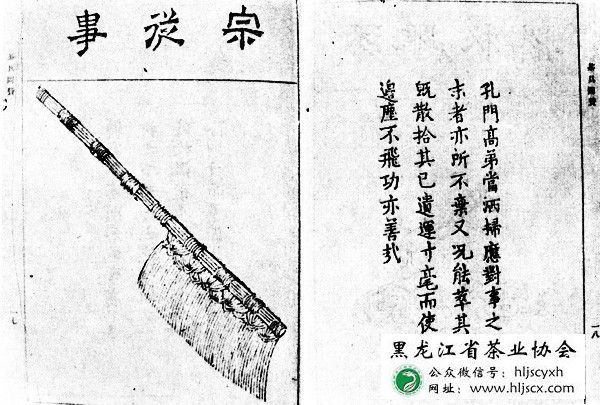 宗從事
孔門高弟當洒掃應對事之
末者亦所不棄又况能萃其
既散拾其已遺運寸毫而使
邊塵不飛功亦善哉
茶具圖贊
一八
黑龙江省茶业协会
公众微信号：hljscyxh
网址：www.hljscx.com